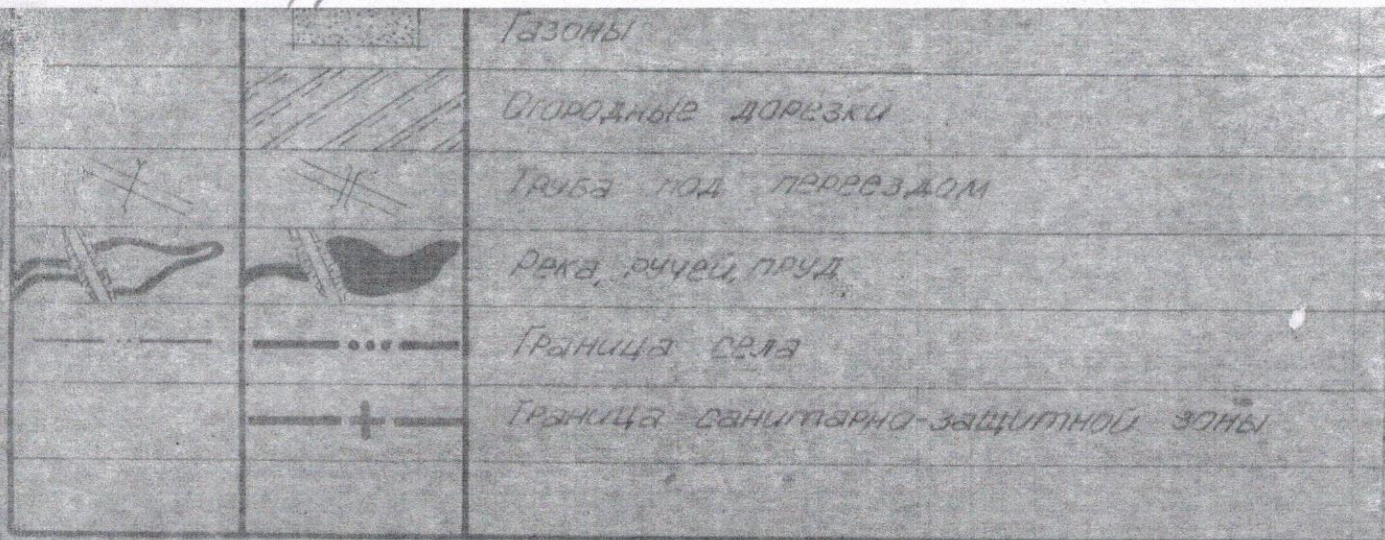 Газоны
Огородные дорезки
Труба под переездом
Река, ручей, пруд
Граница села
Граница санитарно-защитной зоны